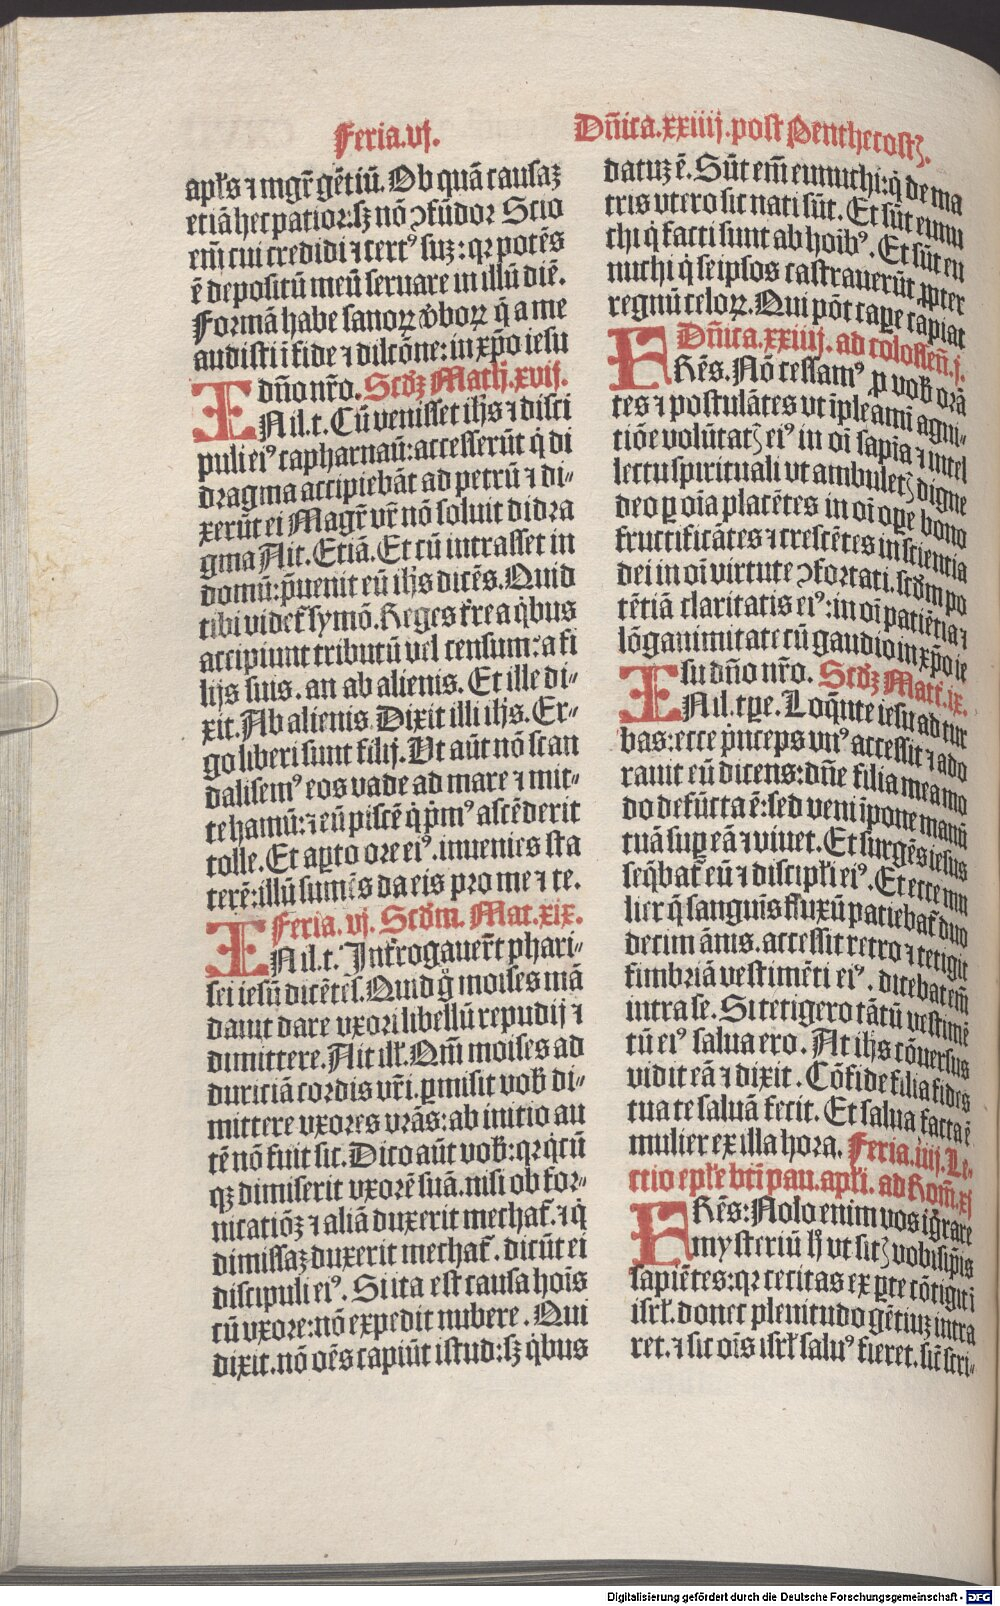 Feria.vj.
apl̄s ⁊ mgr̄ gētiū. Ob quā causaꝫ
etiā hec patior: sꝫ nō ꝯfūdor Scio
em̄ cui credidi ⁊ certꝰ suꝫ: qꝛ potēs
ē depositū meū seruare in illū diē.
Formā habe sanoꝝ v̓boꝝ q̄ a me
audisti ī fide ⁊ dilcōne: in xp̄o iesu
dn̄o nr̄o. Scd̓ꝫ Math̓. xvij.
IN il.t. Cū venisset ih̄s ⁊ disci
puli eiꝰ capharnaū: accesserūt q̇ di
dragma accipiebāt ad petrū ⁊ di⸗
xerūt ei Magr̄ vr̄ nō soluit didra
gma Ait. Etiā. Et cū intrasset in
domū: p̄uenit eū ih̄s dicēs. Quid
tibi videt̄ symō. Reges tr̄e a q̇bus
accipiunt tributū vel censum: a fi
lijs suis. an ab alienis. Et ille di⸗
xit. Ab alienis Dixit illi ih̄s. Er⸗
go liberi sunt filij. Ut aūt nō scan
dalisemꝰ eos vade ad mare ⁊ mit⸗
te hamū: ⁊ eū piscē q̇ ṗmꝰ ascēderit
tolle. Et aꝑto ore eiꝰ. inuenies sta
terē: illū sumēs da eis pro me ⁊ te.
Feria. vj. Scd̓m. Mat. xix.
IN il.t. Int̓rogauer̄t phari⸗
sei iesū dicētes. Quid gͦ moises mā
dauit dare vxori libellū repudij ⁊
dimittere. Ait ill̄. Qm̄ moises ad
duriciā cordis vr̄i. ꝑmisit vob̓ di⸗
mittere vxores vrās: ab initio au
tē nō fuit sic. Dico aūt vob̓: qꝛ q̇cū
qꝫ dimiserit vxorē suā. nisi ob for⸗
nicatiōꝫ ⁊ aliā duxerit mechat̄. ⁊ q̇
dimissaꝫ duxerit mechat̄. dicūt ei
discipuli eiꝰ. Si ita est causa hoīs
cū vxore: nō expedit nubere. Qui
dixit. nō oēs capiūt istud: sꝫ q̇bus
Dn̄ica. xxiiij. post Penthecostꝫ.
datuꝫ ē. Sūt em̄ eunuchi: q̇ de ma
tris vtero sic nati sūt. Et sūt eunu
chi q̇ facti sunt ab hoībꝰ. Et sūt eu
nuchi q̇ seipsos castrauerūt ꝓpter
regnū celoꝝ. Qui pōt caꝑe capiat
Dn̄ica. xxiiij. ad colossen̄. j.
FRēs. Nō cessamꝰ ꝓ vob̓ orā
tes ⁊ postulātes vt īpleam̄ agni⸗
tiōe volūtatꝫ eiꝰ in oī sapīa ⁊ intel
lectu spirituali vt ambuletꝫ digne
deo ꝑ oīa placētes in oī oꝑe bono
fructificātes ⁊ crescētes in scientia
dei in oī virtute ꝯfortati. scd̓m po
tētiā claritatis eiꝰ: in oī patiētia ⁊
lōganimitate cū gaudio in xp̄o ie
su dn̄o nr̄o. Scd̓ꝫ Mat̄. ix.
IN il. tꝑe. Loq̄nte iesu ad tur
bas: ecce ṗnceps vnꝰ accessit ⁊ ado
rauit eū dicens: dn̄e filia mea mo
do defūcta ē: sed veni īpone manū
tuā suꝑ eā ⁊ viuet. Et surgēs iesus
seq̄bat̄ eū ⁊ discipl̄i eiꝰ. Et ecce mu
lier q̄ sanguīs fluxū patiebat̄ duo
decim ānis. accessit retro ⁊ tetigit
fimbriā vestimēti eiꝰ. dicebat em̄
intra se. Si tetigero tātū vestimē
tū eiꝰ salua ero. At ih̄s cōuersus
vidit eā ⁊ dixit. Cōfide filia fides
tua te saluā fecit. Et salua facta ē
mulier ex illa hora. Feria. iiij. Le⸗
ctio epl̄e bti̅ pau. apl̄i. ad Rom̄. xj
FRēs: Nolo enim vos ig̓rare
mysteriū h̓ vt sitꝫ vobisip̄is
sapiētes: qꝛ cecitas ex ꝑte cōtigit ī
isrl̄. donec plenitudo gētiuꝫ intra
ret. ⁊ sic oīs isrl̄ saluꝰ fieret. sic̄ scri⸗
Digitalisierung gefördert durch die Deutsche Forschungsgemeinschaft - DFG